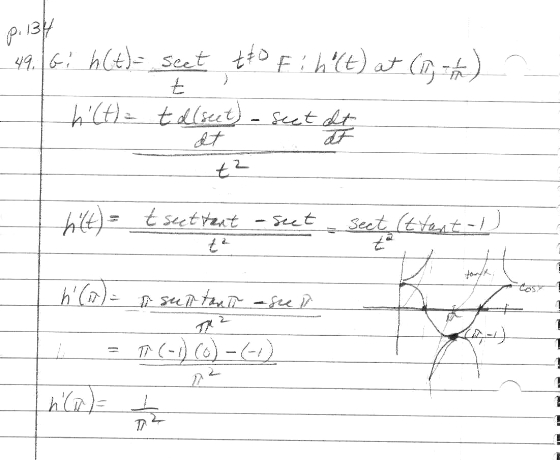 p.134
49. G: h(t) = sect / t, t≠0 F: h'(t) at (π, -1/π)
h'(t) = (t d(sect)/dt - sect dt/dt) / t²
h'(t) = (t sect tant - sect) / t² = sect (t tant - 1) / t²
h'(π) = (π secπ tanπ - sec π) / π²
= (π (-1) (0) - (-1)) / π²
h'(π) = 1 / π²
tanx
cosx
π
(π, -1)